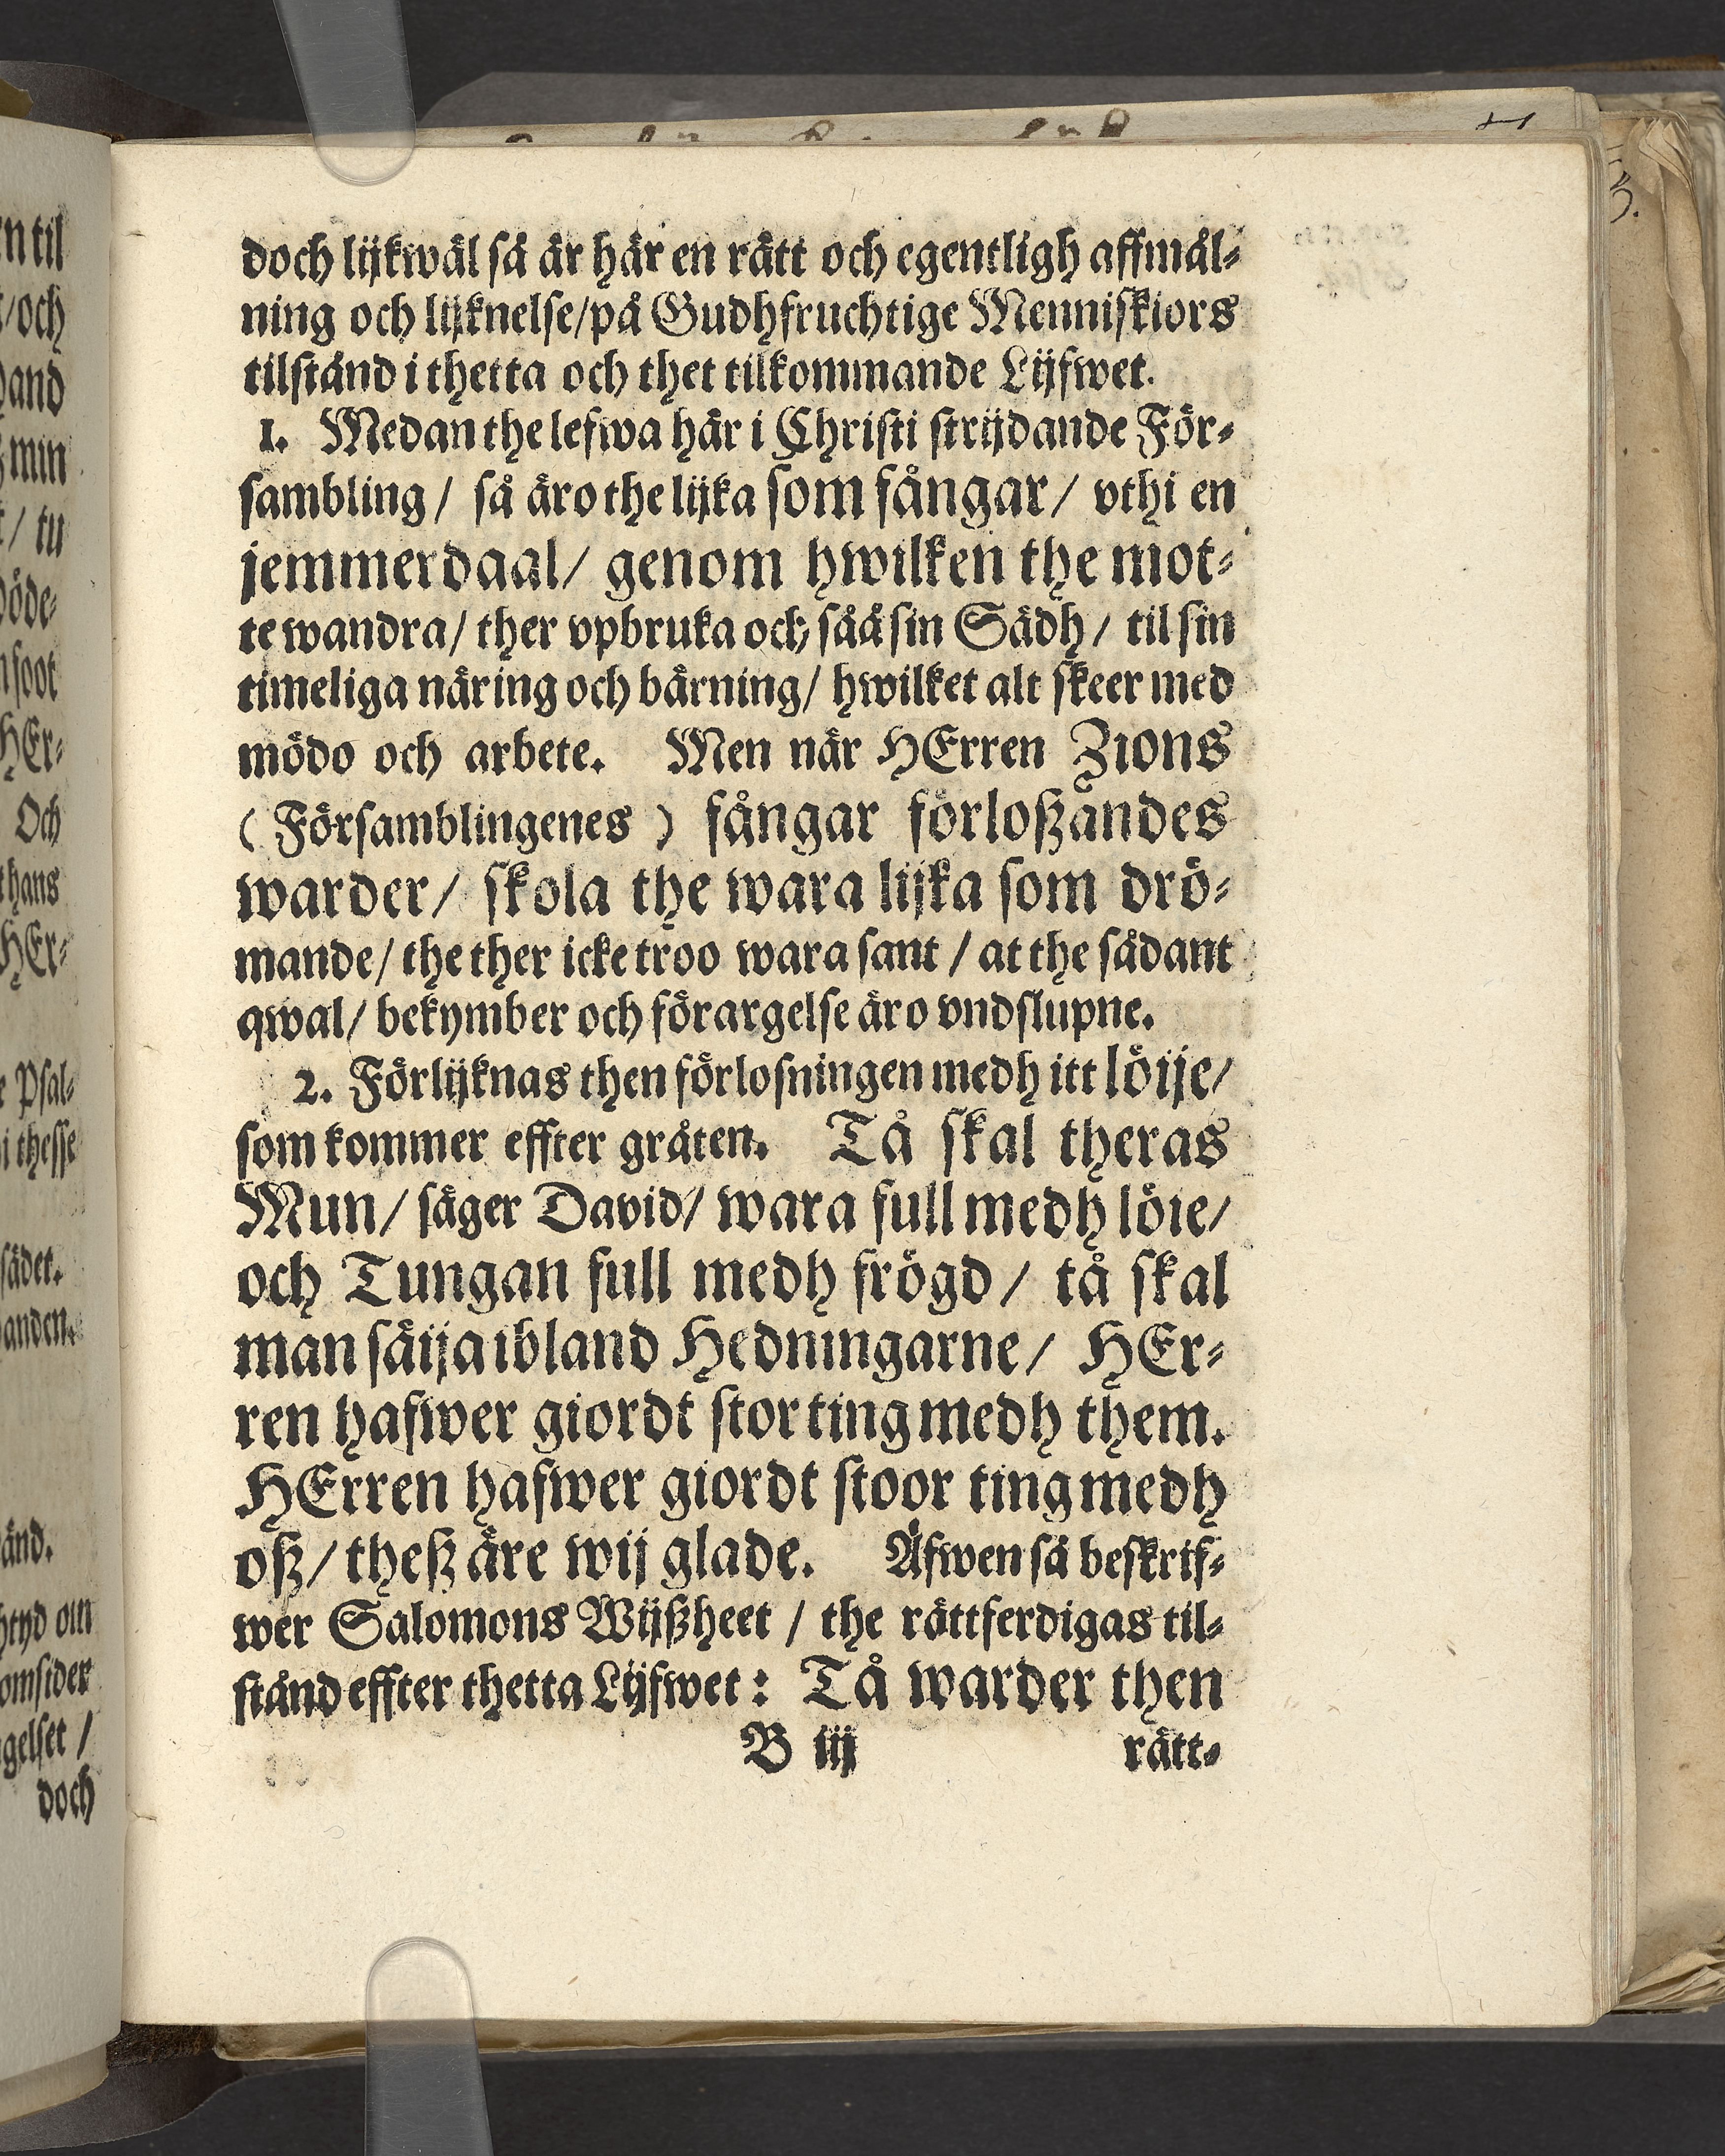 doch lijkwäl så är här en rätt och egentligh affmål-
ning och lijknelse/på Gudhfruchtige Menniskiors
tilstånd i thetta och thet tilkommande Lijfwet.
1. Medan the lefwa här i Christi strijdande För-
sambling/ så äro the lijka som fångar/ vthi en
jemmerdaal/ genom hwilken the mot-
te wandra/ ther vpbruka och såå sin Sädh/ til sin
timeliga näring och bärning/ hwilket alt skeer med
mödo och arbete. Men när HErren Zions
(Församblingenes) fångar förloßandes
warder/ skola the wara lijka som drö-
mande/ the ther icke troo wara sant / at the sådant
qwal/ bekymber och förargelse äro vndslupne.
2. Förlijknas then förlosningen medh itt löije/
som kommer effter gråten. Tå skal theras
Mun/ säger David/ wara full medh löie/
och Tungan full medh frögd/ tå skal
man säija ibland Hedningarne/ HEr-
ren hafwer giordt stor ting medh them.
HErren hafwer giordt stoor ting medh
oß/ theß äre wij glade. Äfwen så beskrif-
wer Salomons Wijßheet / the rättferdigas til-
stånd effter thetta Lijfwet: Tå warder then
B iij rätt-
en til
/och
min
/ tu
öde-
foot
HEr-
Och
hans
HEr-
Psal-
i thesse
sädet.
anden.
änd.
om
omsider
gelset /
doch